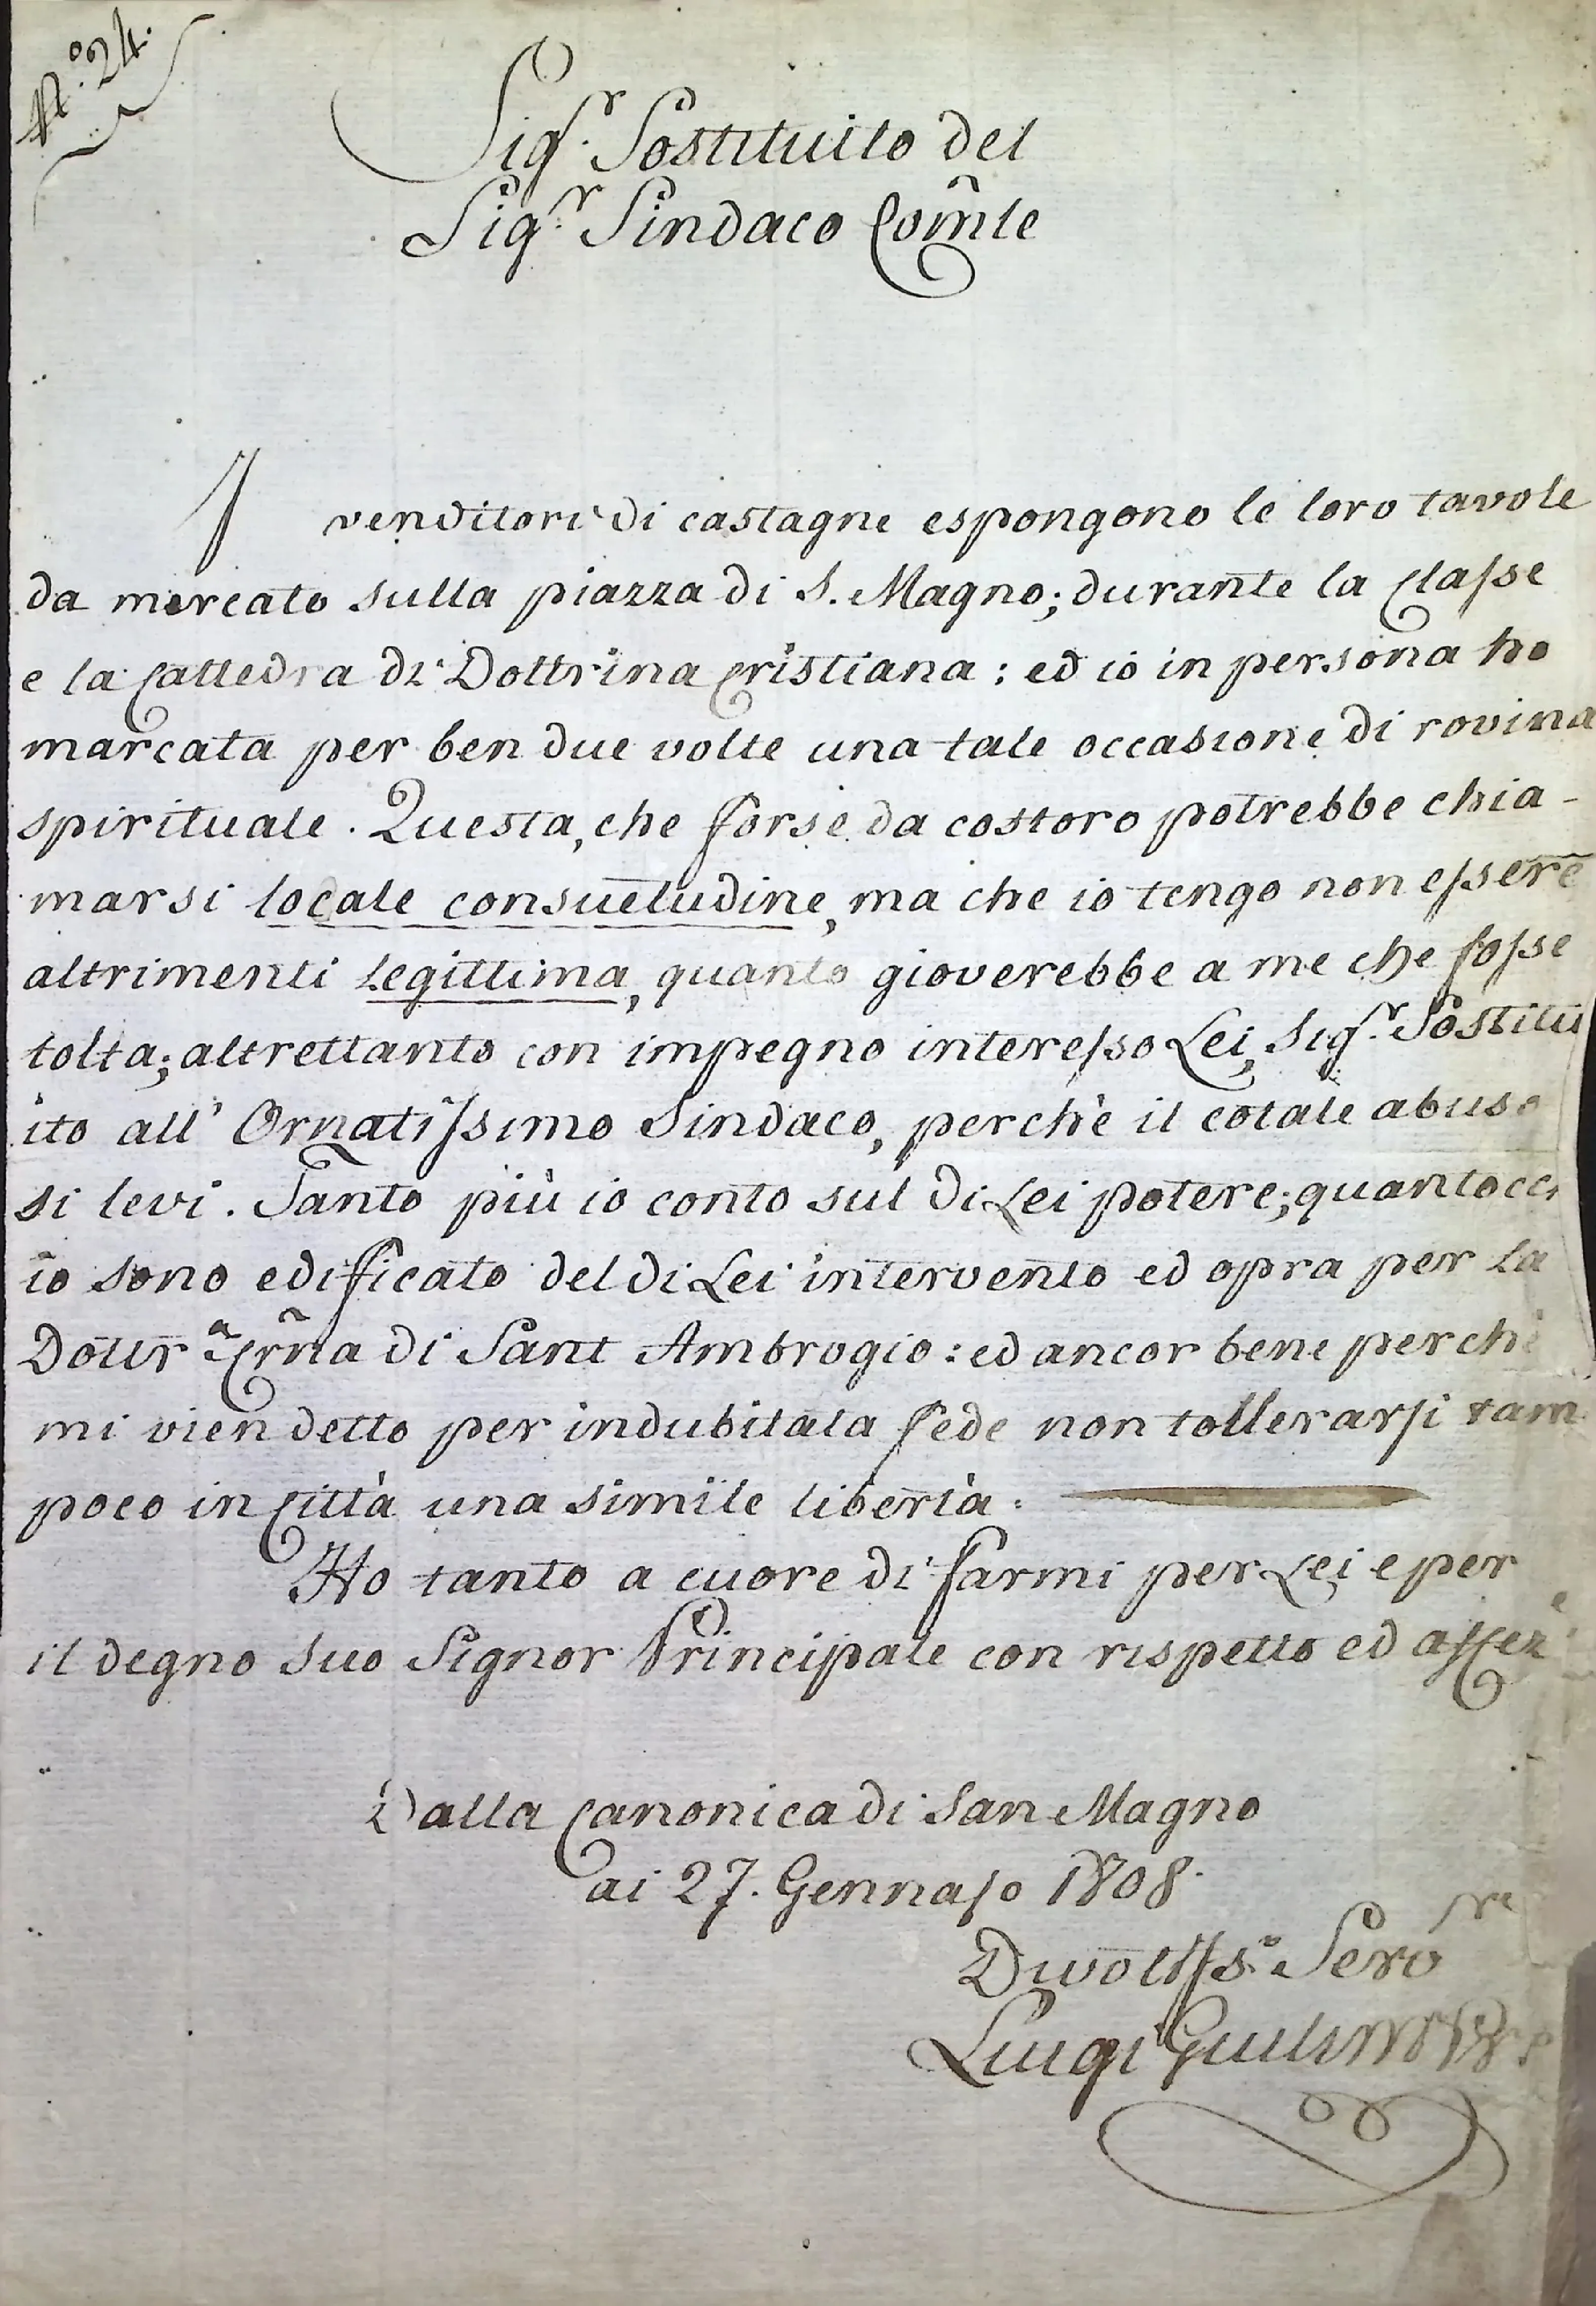 N.º 24.
Sig.r Sostituito del
Sig.r Sindaco Com̃le
I venditori di castagne espongono le loro tavole
da mercato sulla piazza di S. Magno; durante la Classe
e la Cattedra di Dottrina Cristiana: ed io in persona ho
marcata per ben due volte una tale occasione di rovina
spirituale. Questa, che forse da costoro potrebbe chia-
marsi locale consuetudine, ma che io tengo non essere
altrimenti legittima, quanto gioverebbe a me che fosse
tolta; altrettanto con impegno interesso Lei, Sig.r Sostitu
ito all' Ornatissimo Sindaco, perchè il cotale abuso
si levi. Tanto più io conto sul di Lei potere; quantocc
io sono edificato del di Lei intervento ed opra per la
Dottr.a Crña di Sant Ambrogio: ed ancor bene perchè
mi vien detto per indubitata fede non tollerarsi tam
poco in Città una simile libertà.
Ho tanto a cuore di farmi per Lei e per
il degno suo Signor Principale con rispetto ed affez
Dalla Canonica di San Magno
ai 27. Gennajo 1808.
Divotiss.o Servre
Luigi